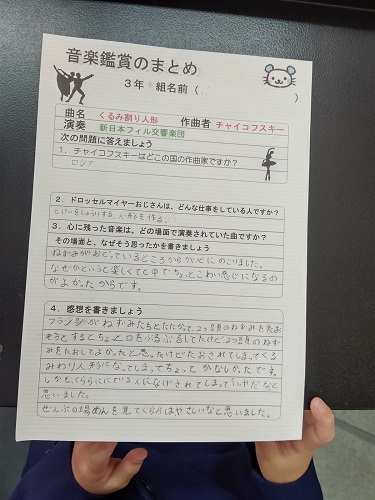 音楽鑑賞のまとめ
３年 組名前（ ）
曲名 くるみ割り人形 作曲者 チャイコフスキー
演奏 新日本フィル交響楽団
次の問題に答えましょう
１．チャイコフスキーはどこの国の作曲家ですか？
ロシア
２．ドロッセルマイヤーおじさんは、どんな仕事をしている人ですか？
とけいをしゅうりする、人形を作る。
３．心に残った音楽は、どの場面で演奏されていた曲ですか？
その場面と、なぜそう思ったかを書きましょう
ねずみがおどっているところからが心にのこりました。
なぜかというと楽しくてと中でちょっとこわい感じになるの
がよかったからです。
４．感想を書きましょう
フランツがねずみたちとたたかって、2つ頭のねずみをたお
そうとするとちょと口をぶるぶるしてたけど2つ頭のねず
みをたおしてよかったと思ったけどたおされてしまってくる
みわり人形になってしまってちょっとかなしかったです。
しかも、くららににげされてしまって だなと
思いました。
ぜんぶの場めんを見てくららはやさしいなと思いました。